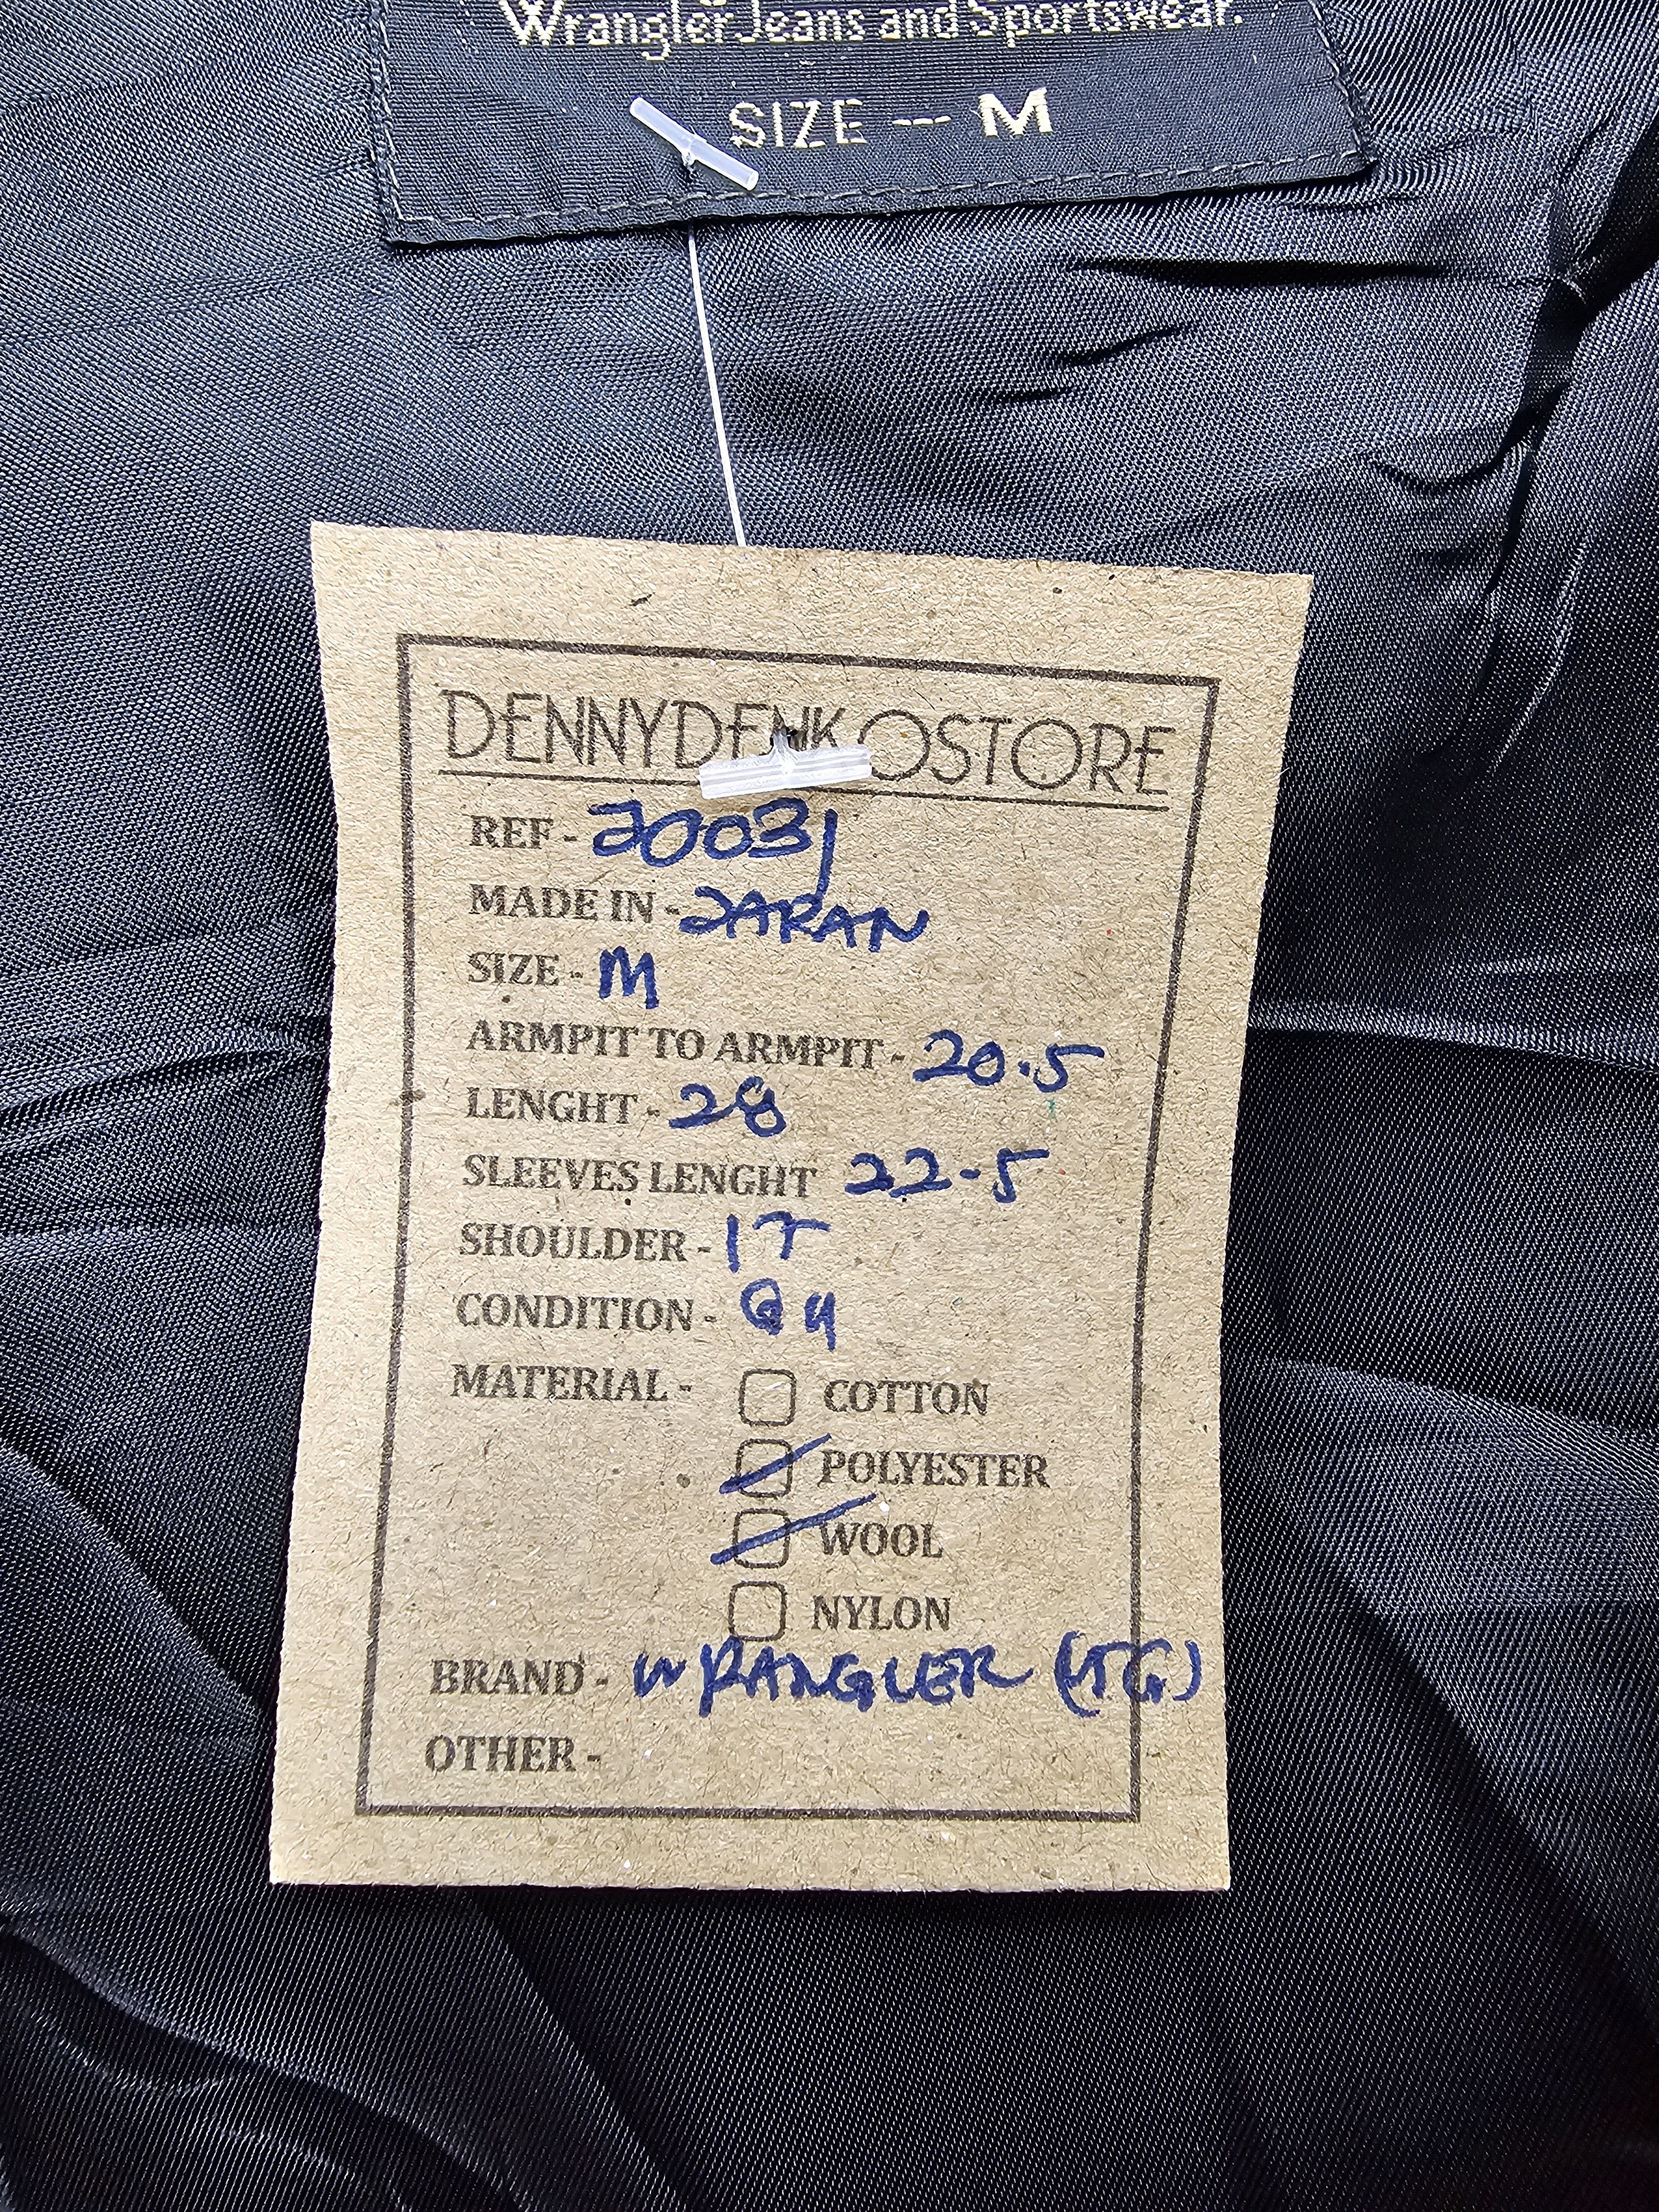 Wrangler Jeans and Sportswear.
SIZE --- M
DENNYDENKOSTORE
REF - 20031
MADE IN - JAPAN
SIZE - M
ARMPIT TO ARMPIT - 20.5
LENGHT - 28
SLEEVES LENGHT 22.5
SHOULDER - 17
CONDITION -
MATERIAL - COTTON
POLYESTER
WOOL
NYLON
BRAND - WRANGLER
OTHER -